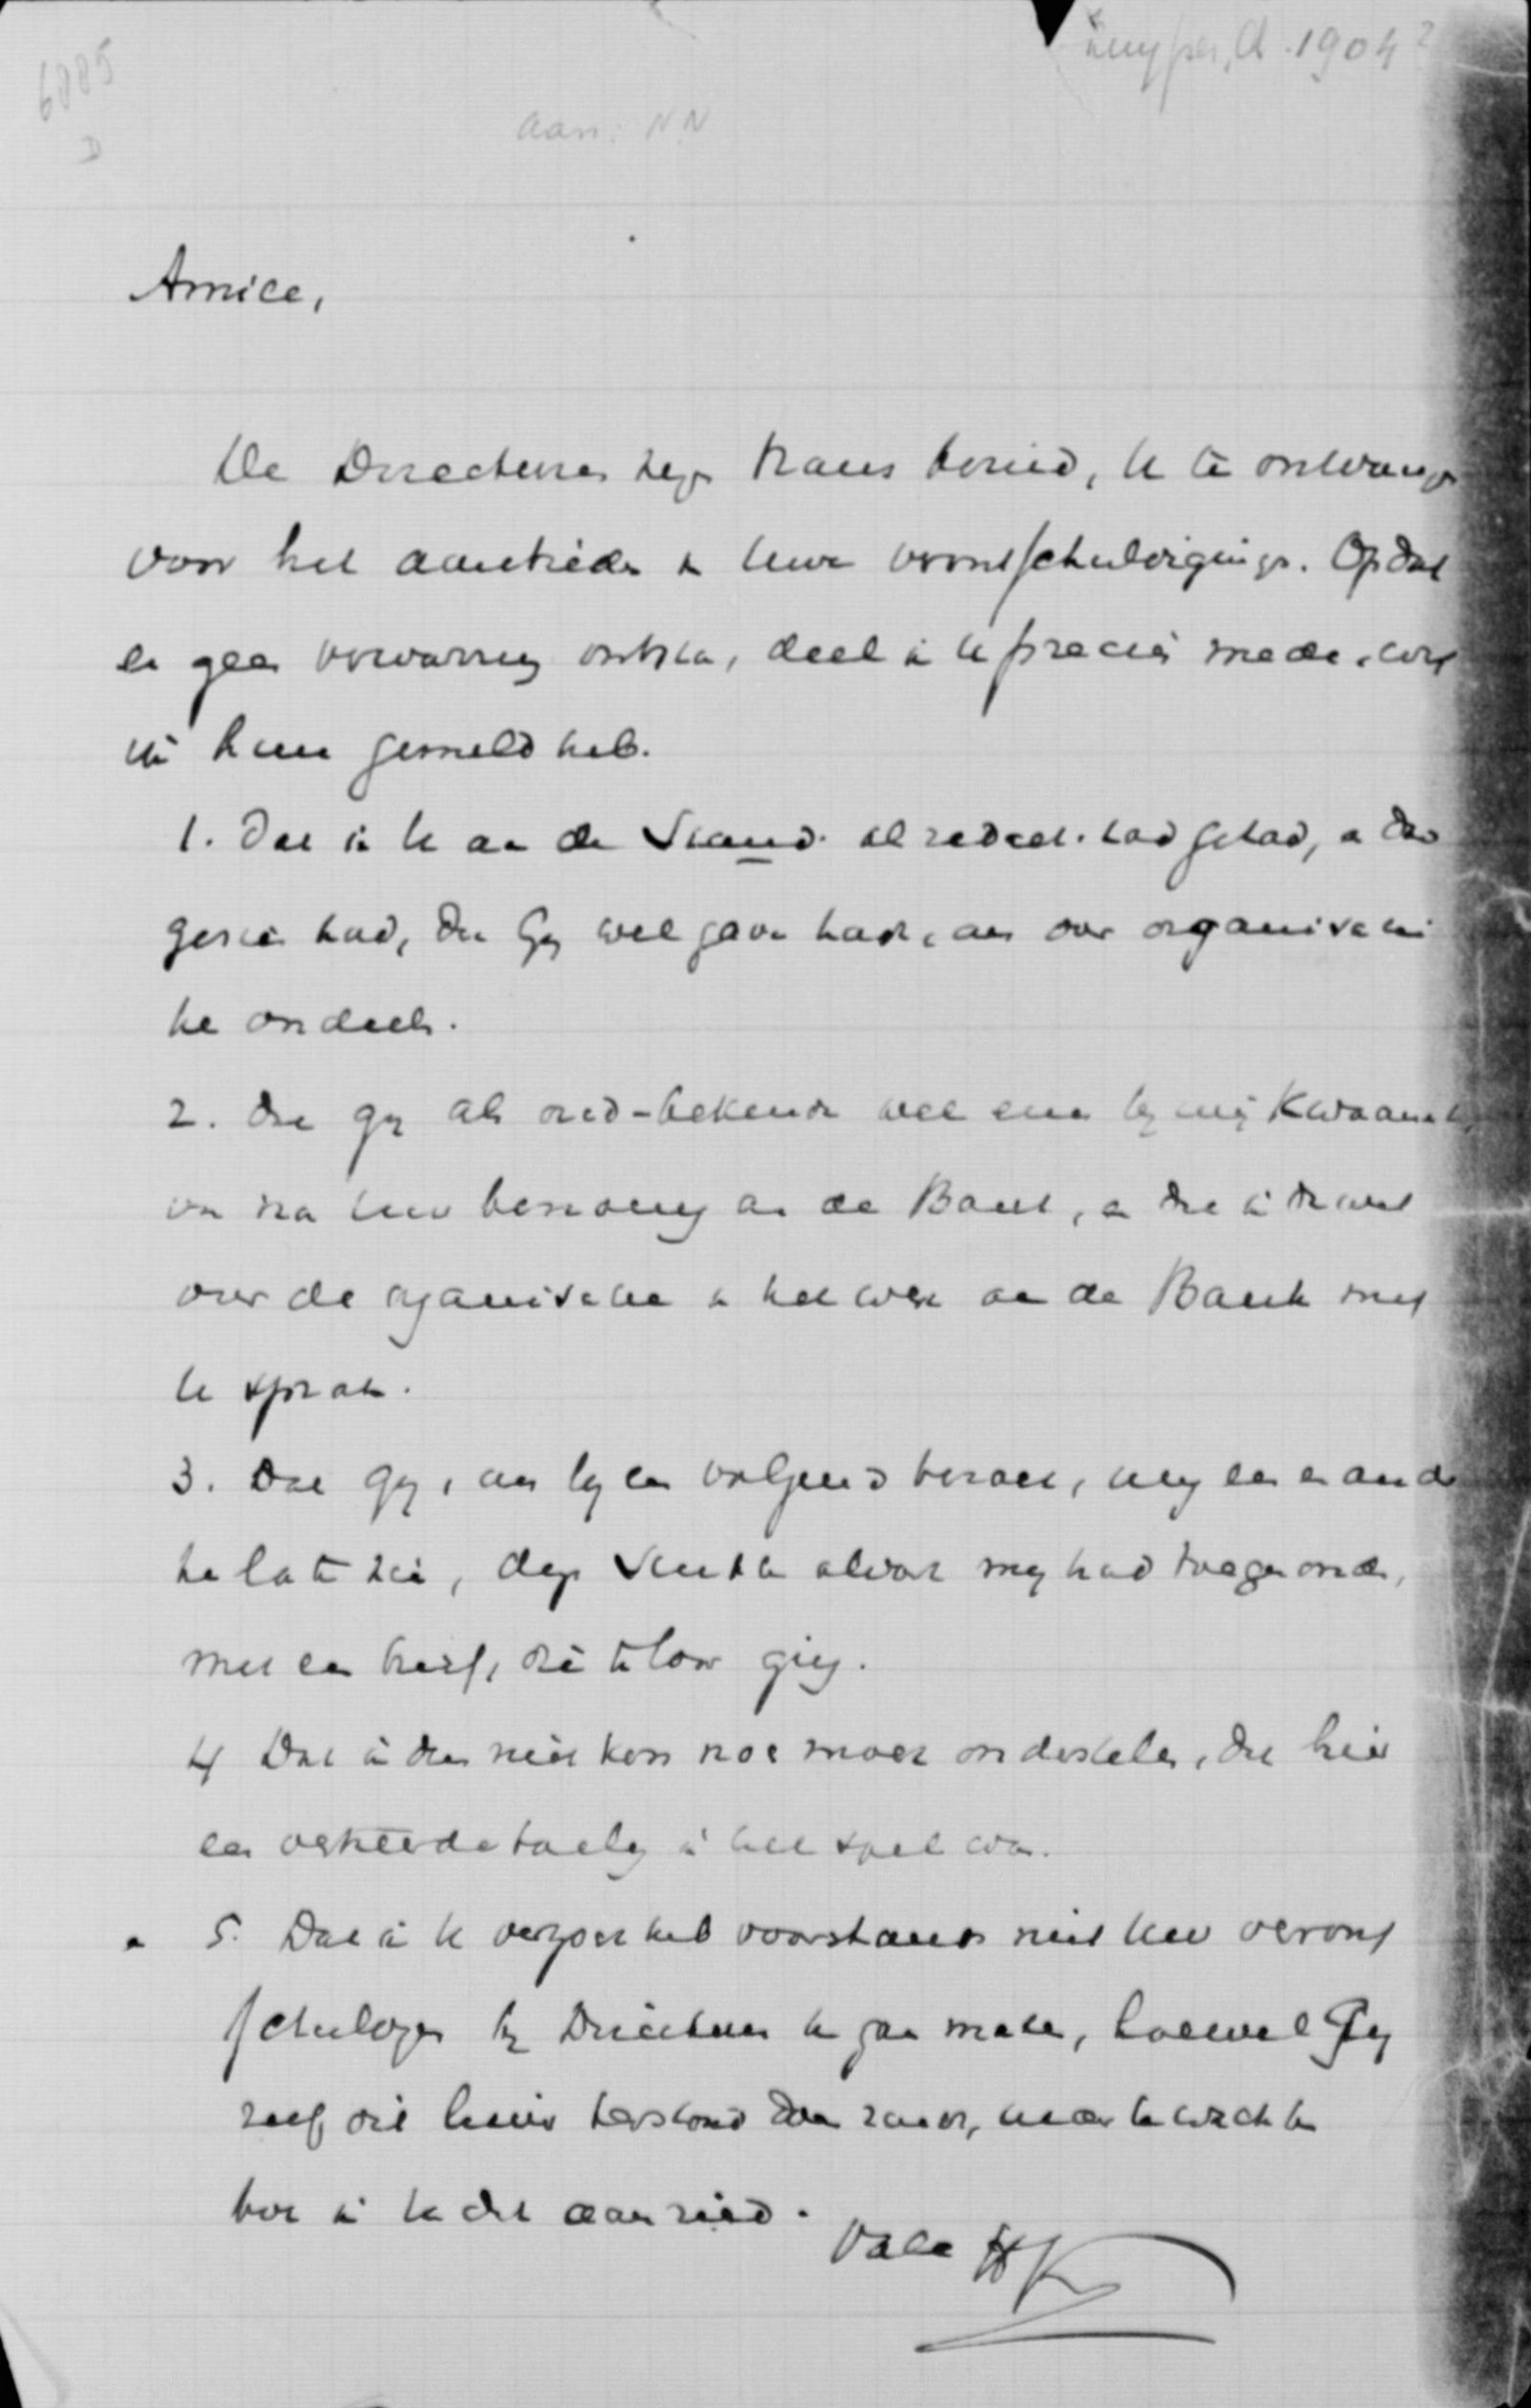 6885
D
Kuyper, A. 1904?
Aan: N.N
Amice,
De Directeuren zijn bereid, U te ontvangen
voor het aanbieden Uwer verontschuldigingen. Opdat
er geen verwarring ontsta, deel ik U precies mede, wat
ik hun gemeld heb.
1. Dat ik U aan de Stand. als redact. had gehad, en dus
gezien had, dat Gij wel gave hadt, om over organisatie
te oordeelen.
2. Dat gij als oud-bekende wel eens bij mij kwaamt,
na uw benoeming aan de Bank, en dat ik toen wel
over de organisatie en het werk aan de Bank met
U sprak.
3. Dat gij, bij een volgend bezoek, mij een en ander
te laten zien, alvast mij had toegezonden,
met een brief, die te loor ging.
4 Dat ik dus niet kon noch mocht onderstellen, dat hier
een verkeerde toeleg in het spel was.
en 5. Dat ik U verzocht heb voorshands niet Uw veront
schuldigen bij Directeuren te gaan maken, hoewel Gij
zelf dit liever terstond doen zoudt, maar te wachten
tot ik U dit aanried.
Vale K